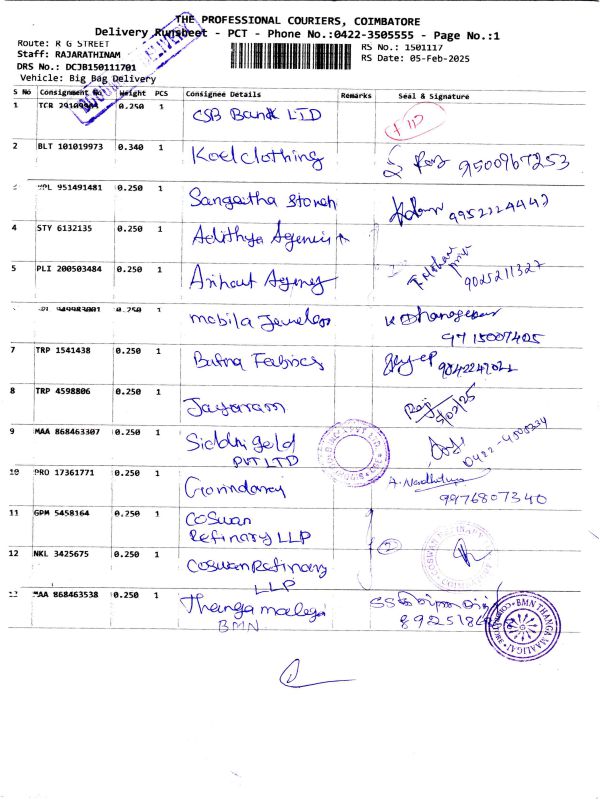 THE PROFESSIONAL COURIERS, COIMBATORE
Delivery Runsheet - PCT - Phone No.:0422-3505555 - Page No.:1
Route: R G STREET
Staff: RAJARATHINAM
DRS No.: DCJB150111701
Vehicle: Big Bag Delivery
RS No.: 1501117
RS Date: 05-Feb-2025
DELIVERY
S No Consignment No Weight PCS Consignee Details Remarks Seal & Signature
1 TCR 0.250 1 CSB Bank LTD
2 BLT 101019973 0.340 1 Koel clothing 9500967253
951491481 0.250 1 Sangeetha 9952224442
4 STY 6132135 0.250 1 Adithya
5 PLI 200503484 0.250 1 Arihant Agency 9025211327
949983001 0.250 1 mobila 9715007405
7 TRP 1541438 0.250 1 Fabrics
8 TRP 4598806 0.250 1 Jayaram
9 MAA 868463307 0.250 1 Siddhi gold
PVT LTD
10 PRO 17361771 0.250 1 Govindaraj
9976807340
11 GPM 5458164 0.250 1 Coswan
Refinary LLP
12 NKL 3425675 0.250 1 Coswan Refinary
LLP
MAA 868463538 0.250 1 Thanga
BMN
BMN THANGA MAALIGAI